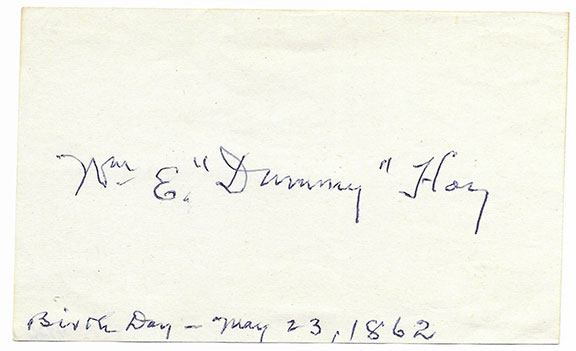 Wm E. "Dummy" Hoy
Birth Day - May 23, 1862